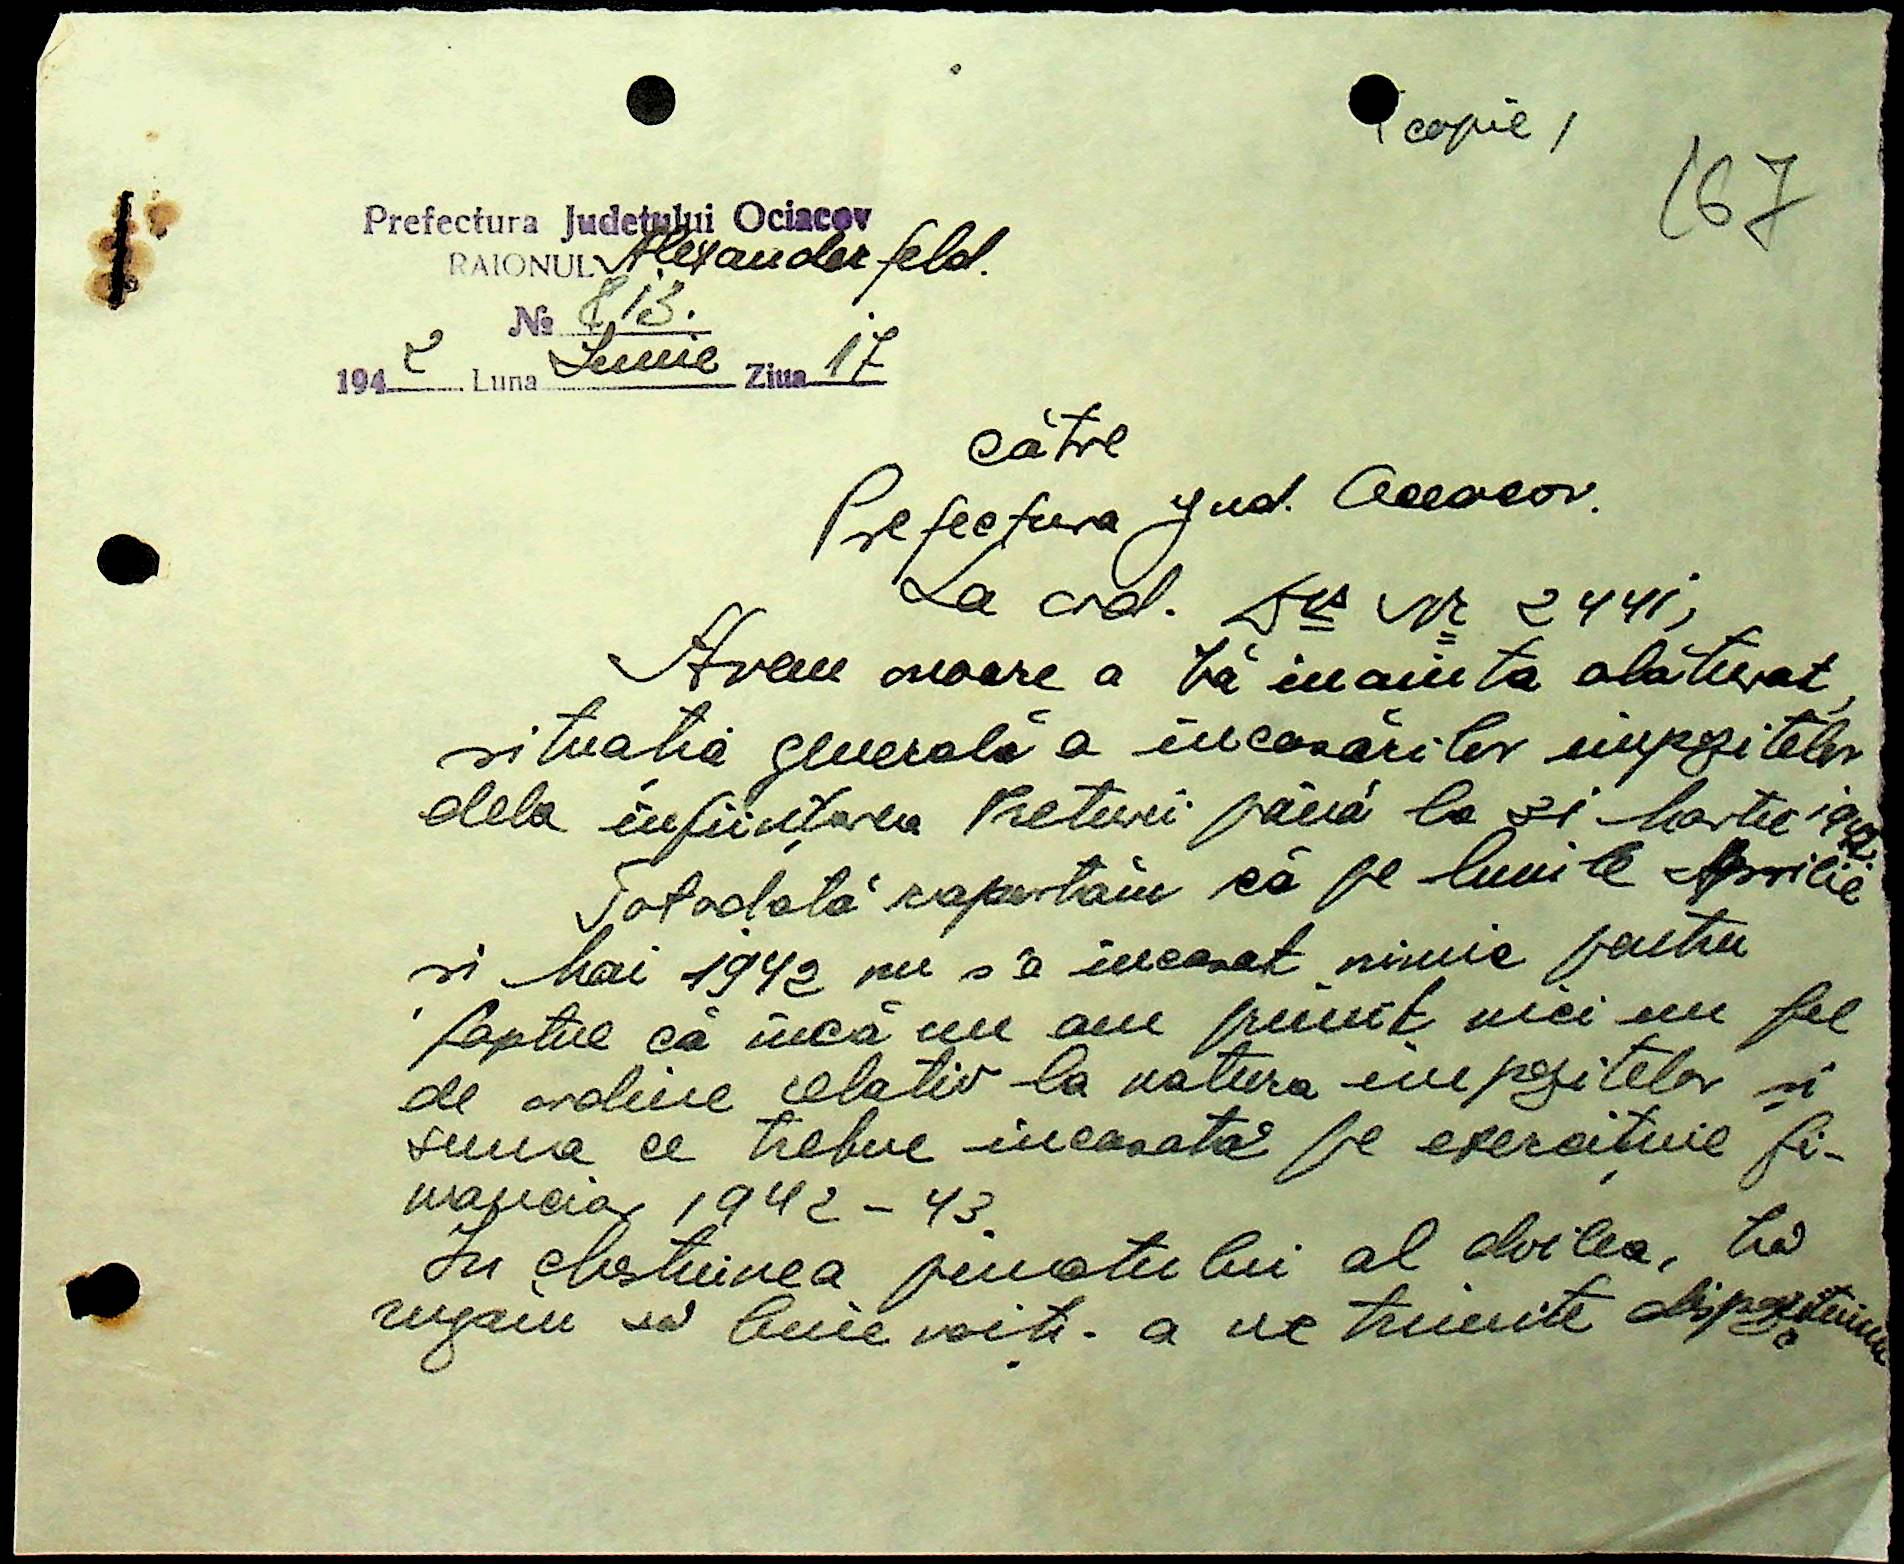 copie /
167
Prefectura Județului Ociacov
RAIONUL Alexanderfeld.
№ 813.
1942 Luna Iunie Ziua 17
către
Prefectura Jud. Oceacov.
La ord. Dvs Nr 2441,
Avem onoare a Vă inainta alăturat,
situația generală a încasărilor impozitelor
dela înființarea Preturii până la 31 Martie 1942.
Totodată raportăm că pe lunile Aprilie
și Mai 1942 nu s'a încasat nimic pentru
faptul că încă nu am primit nici un fel
de ordine relativ la natura impozitelor și
suma ce trebue incasată pe exercițiul fi-
nanciar 1942-43.
In chestiunea punctului al doilea, Vă
rugăm să bine voiți a ne trimite dispozițiuni